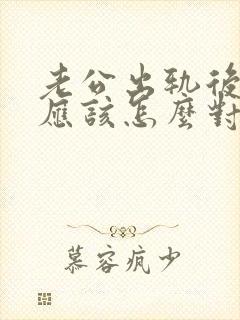 老公出軌後
應該怎麼對
慕容瘋少